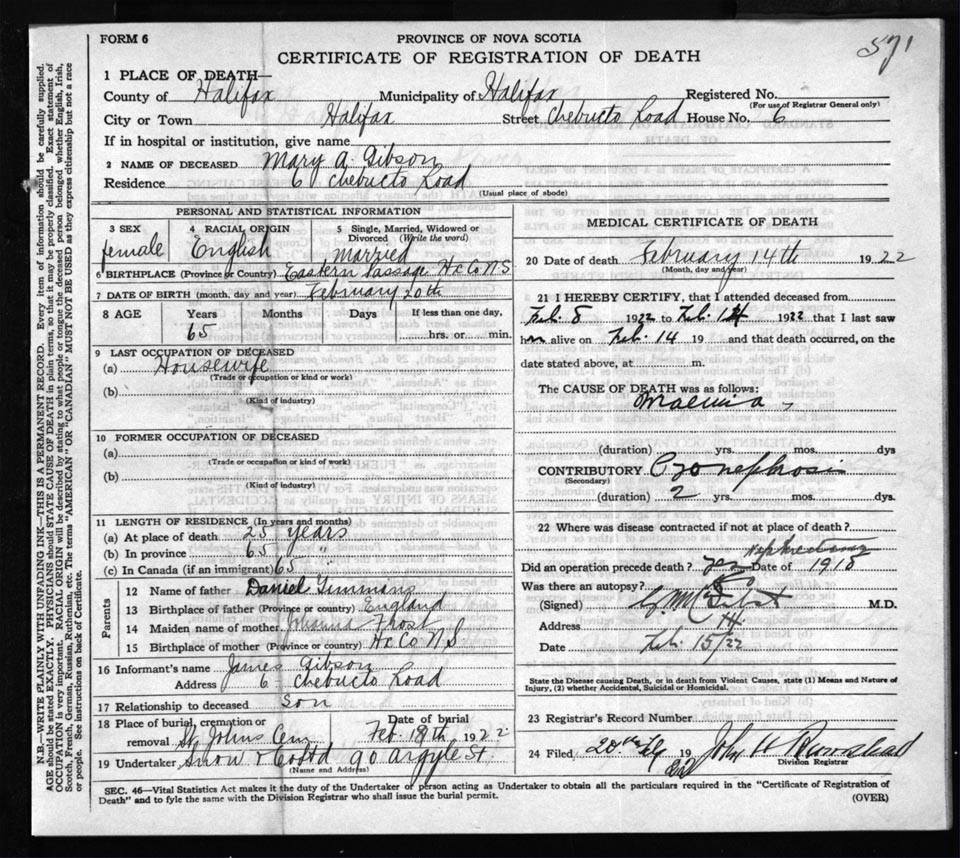 571
FORM 6
PROVINCE OF NOVA SCOTIA
CERTIFICATE OF REGISTRATION OF DEATH
N.B.—WRITE PLAINLY WITH UNFADING INK—THIS IS A PERMANENT RECORD. Every item of information should be carefully supplied.
AGE should be stated EXACTLY. PHYSICIANS should STATE CAUSE OF DEATH in plain terms, so that it may be properly classified. Exact statement of
OCCUPATION is very important. RACIAL ORIGIN will be described by stating to what people or tongue the deceased person belonged whether English, Irish,
Scotch, French, German, Russian, Ruthenian, etc. The terms "AMERICAN" OR "CANADIAN" MUST NOT BE USED as they express citizenship but not a race
or people. See instructions on back of Certificate.
1 PLACE OF DEATH—
County of Halifax Municipality of Halifax Registered No.
(For use of Registrar General only)
City or Town Halifax Street Chebucto Road House No. 6
If in hospital or institution, give name
2 NAME OF DECEASED Mary A. Gibson
Residence 6 Chebucto Road
(Usual place of abode)
PERSONAL AND STATISTICAL INFORMATION
3 SEX 4 RACIAL ORIGIN 5 Single, Married, Widowed or
Divorced (Write the word)
female English Married
6 BIRTHPLACE (Province or Country) Eastern Passage Hx Co N S
7 DATE OF BIRTH (month, day and year) February 20th
8 AGE Years Months Days If less than one day,
65 hrs. or min.
9 LAST OCCUPATION OF DECEASED
(a) Housewife
(Trade or occupation or kind or work)
(b)
(Kind of industry)
10 FORMER OCCUPATION OF DECEASED
(a)
(Trade or occupation or kind of work)
(b)
(Kind of industry)
11 LENGTH OF RESIDENCE (In years and months)
(a) At place of death 25 years
(b) In province 65 "
(c) In Canada (if an immigrant) 65 "
Parents
12 Name of father Daniel Timmons
13 Birthplace of father (Province or country) England
14 Maiden name of mother Johanna Frost
15 Birthplace of mother (Province or country) Hx Co N S
16 Informant's name James Gibson
Address 6 - Chebucto Road
17 Relationship to deceased Son
18 Place of burial, cremation or Date of burial
removal St Johns Cem Feb. 18th 1922
19 Undertaker Snow & Co Ltd 90 Argyle St.
(Name and Address)
MEDICAL CERTIFICATE OF DEATH
20 Date of death February 14th 1922
(Month, day and year)
21 I HEREBY CERTIFY, that I attended deceased from
Feb. 8 1922 to Feb. 14 1922 that I last saw
her alive on Feb. 14 19 and that death occurred, on the
date stated above, at m.
The CAUSE OF DEATH was as follows:
Uraemia
(duration) yrs. mos. dys
CONTRIBUTORY Pyonephrosis
(Secondary)
(duration) 2 yrs. mos. dys.
22 Where was disease contracted if not at place of death?
Nephrectomy
Did an operation precede death? yes Date of 1918
Was there an autopsy?
(Signed) M.D.
Address H.
Date Feb. 15/22
State the Disease causing Death, or in death from Violent Causes, state (1) Means and Nature of
Injury, (2) whether Accidental, Suicidal or Homicidal.
23 Registrar's Record Number
24 Filed 20th Feb 1922 John H
Division Registrar
SEC. 46—Vital Statistics Act makes it the duty of the Undertaker or person acting as Undertaker to obtain all the particulars required in the "Certificate of Registration of
Death" and to fyle the same with the Division Registrar who shall issue the burial permit.
(OVER)